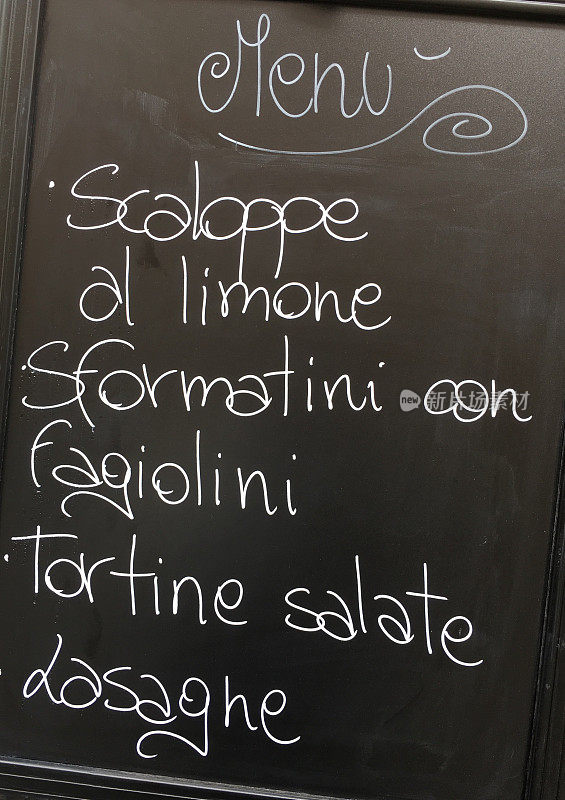 Menu
· Scaloppe
al limone
· Sformatini con
fagiolini
· Tortine salate
· Lasagne
new 新片场素材